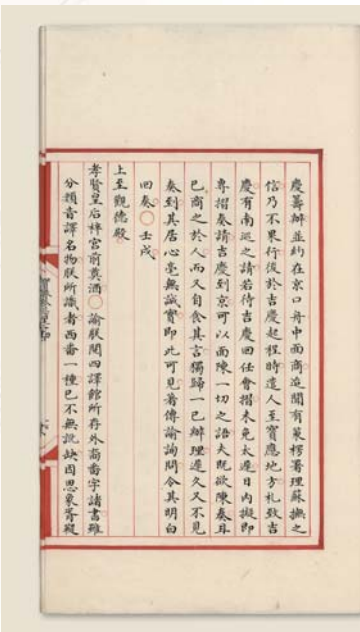 慶籌辦並約在京口舟中面商迨聞有策楞署理蘇撫之
信乃不果行後於吉慶起程時遣人至寶應地方札致吉
慶有南巡之請若待吉慶回任會摺未免太遲日內擬即
專摺奏請吉慶到京可以面陳一切之語夫既欲陳奏且
已商之於人而又自食其言獨歸一己辦理遲久又不見
奏到其居心毫無誠實即此可見著傳諭詢問令其明白
回奏○壬戌
上至觀德殿
孝賢皇后梓宮前奠酒○諭朕閱四譯館所存外裔番字諸書雖
分類音譯名物朕所識者西番一種已不無訛缺因思象胥鞮